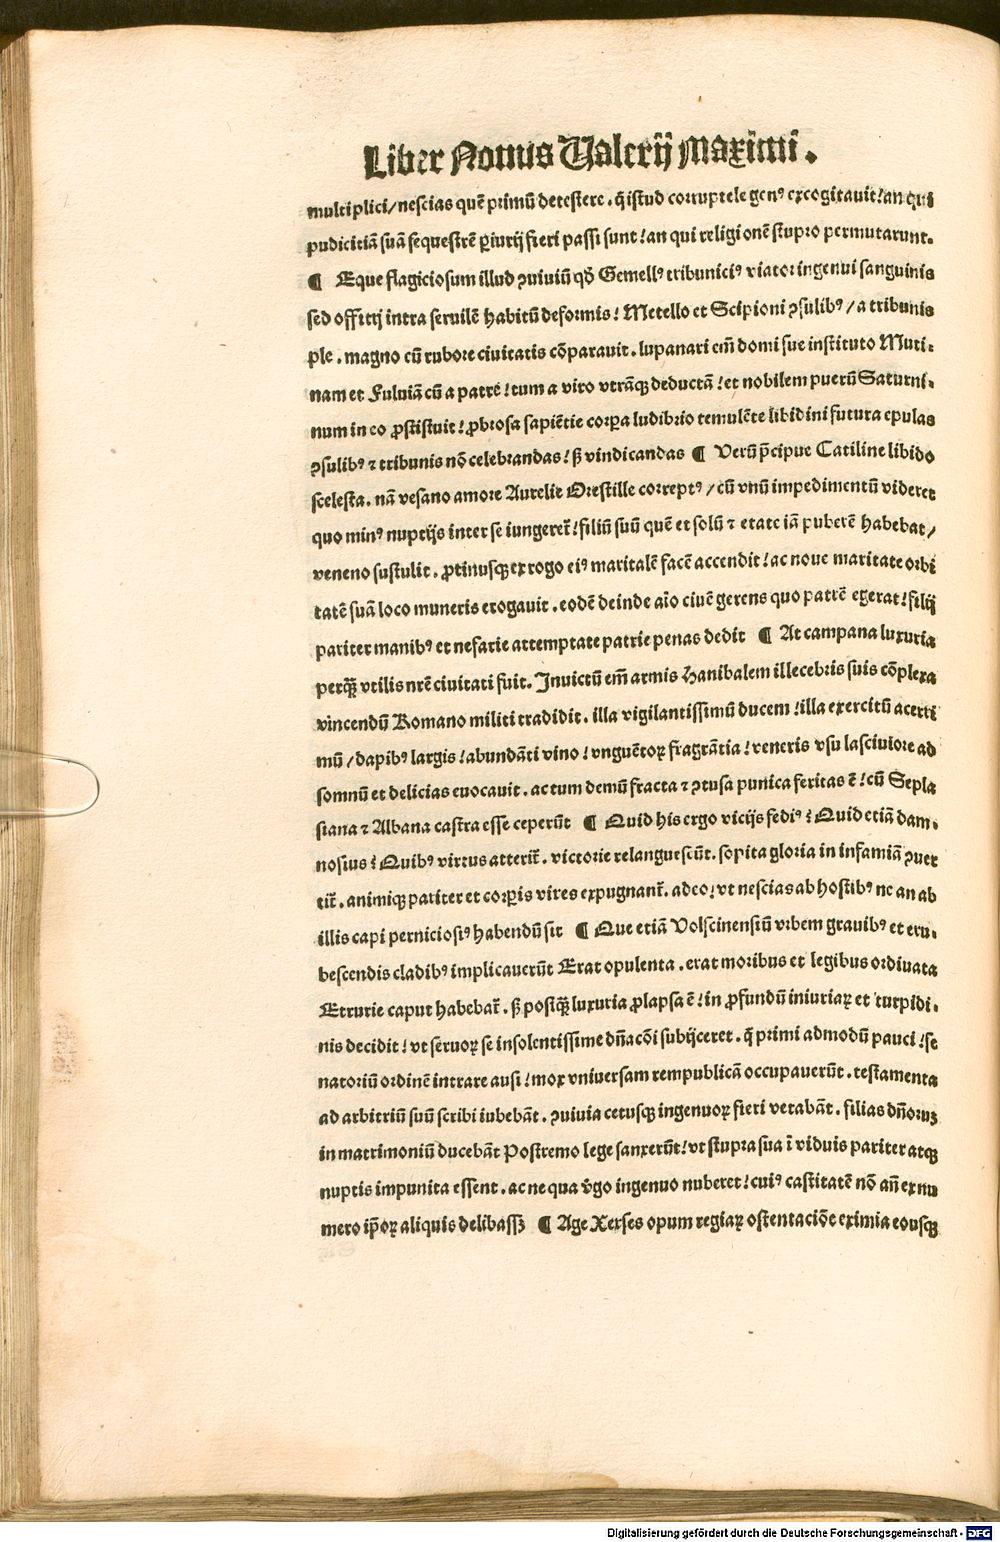 Liber Nonus Valerij Maximi.
multiplici/nescias quē primū detestere. q̄ istud corruptele genꝰ excogitauit! an qui
pudicitiā suā sequestrē ꝑiurij fieri passi sunt! an qui religionē stupro permutarunt.
¶ Eque flagiciosum illud ꝯuiuiū qđ Gemellꝰ tribuniciꝰ viator ingenui sanguinis
sed offitij intra seruilē habitū deformis! Metello et Scipioni ꝯsulibꝰ/a tribunis
ple. magno cū rubore ciuitatis cōparauit. lupanari em̄ domi sue instituto Muti-
nam et Fuluiā cū a patre! tum a viro vtrāqꝫ deductā! et nobilem puerū Saturni-
num in eo ꝓstistuit! ꝓbrosa sapiētie corpa ludibrio temulēte libidini futura epulas
ꝯsulibꝰ ⁊ tribunis nō celebrandas! sꝫ vindicandas ¶ Verū p̄cipue Catiline libido
scelesta. nā vesano amore Aurelie Orestille correptꝰ/cū vnū impedimentū videret
quo minꝰ nuptijs inter se iungeret̄! filiū suū quē et solū ⁊ etate iā puberē habebat/
veneno sustulit. ꝓtinusqꝫ ex rogo eiꝰ maritalē facē accendit! ac noue maritate orbi
tatē suā loco muneris erogauit. eodē deinde aīo ciuē gerens quo patrē egerat! filij
pariter manibꝰ et nefarie attemptate patrie penas dedit ¶ At campana luxuria
perqꝫ̄ vtilis nr̄e ciuitati fuit. Inuictū em̄ armis Hanibalem illecebris suis cōplexa
vincendū Romano militi tradidit. illa vigilantissimū ducem! illa exercitū acerri
mū/dapibꝰ largis! abundāti vino! vnguētoꝝ fragrātia! veneris vsu lasciuiore ad
somnū et delicias euocauit. ac tum demū fracta ⁊ ꝯtusa punica feritas ē! cū Sepla
siana ⁊ Albana castra esse ceperūt ¶ Quid his ergo vicijs fediꝰ? Quid etiā dam-
nosius? Quibꝰ virtus atterit̄. victorie relanguescūt. sopita gloria in infamiā ꝯuer
tit̄. animiqꝫ pariter et corpis vires expugnant̄. adeo, vt nescias ab hostibꝰ ne an ab
illis capi perniciosiꝰ habendū sit ¶ Que etiā Volscinensiū vrbem grauibꝰ et eru-
bescendis cladibꝰ implicauerūt Erat opulenta. erat moribus et legibus ordinata
Etrurie caput habebat̄. sꝫ postqꝫ̄ luxuria ꝓlapsa ē! in ꝓfundū iniuriaꝝ et turpidi-
nis decidit! vt seruoꝝ se insolentissime dn̄acōi subijceret. q̄ primi admodū pauci! se
natoriū ordinē intrare ausi! mox vniuersam rempublicā occupauerūt. testamenta
ad arbitriū suū scribi iubebāt. ꝯuiuia cetusqꝫ ingenuoꝝ fieri vetabāt. filias dn̄oruꝫ
in matrimoniū ducebāt Postremo lege sanxerūt! vt stupra sua ī viduis pariter atqꝫ
nuptis impunita essent. ac ne qua v̄go ingenuo nuberet! cuiꝰ castitatē nō an̄ ex nu
mero ip̄oꝝ aliquis delibassꝫ ¶ Age Xerses opum regiaꝝ ostentaciōe eximia eousqꝫ
Digitalisierung gefördert durch die Deutsche Forschungsgemeinschaft - DFG